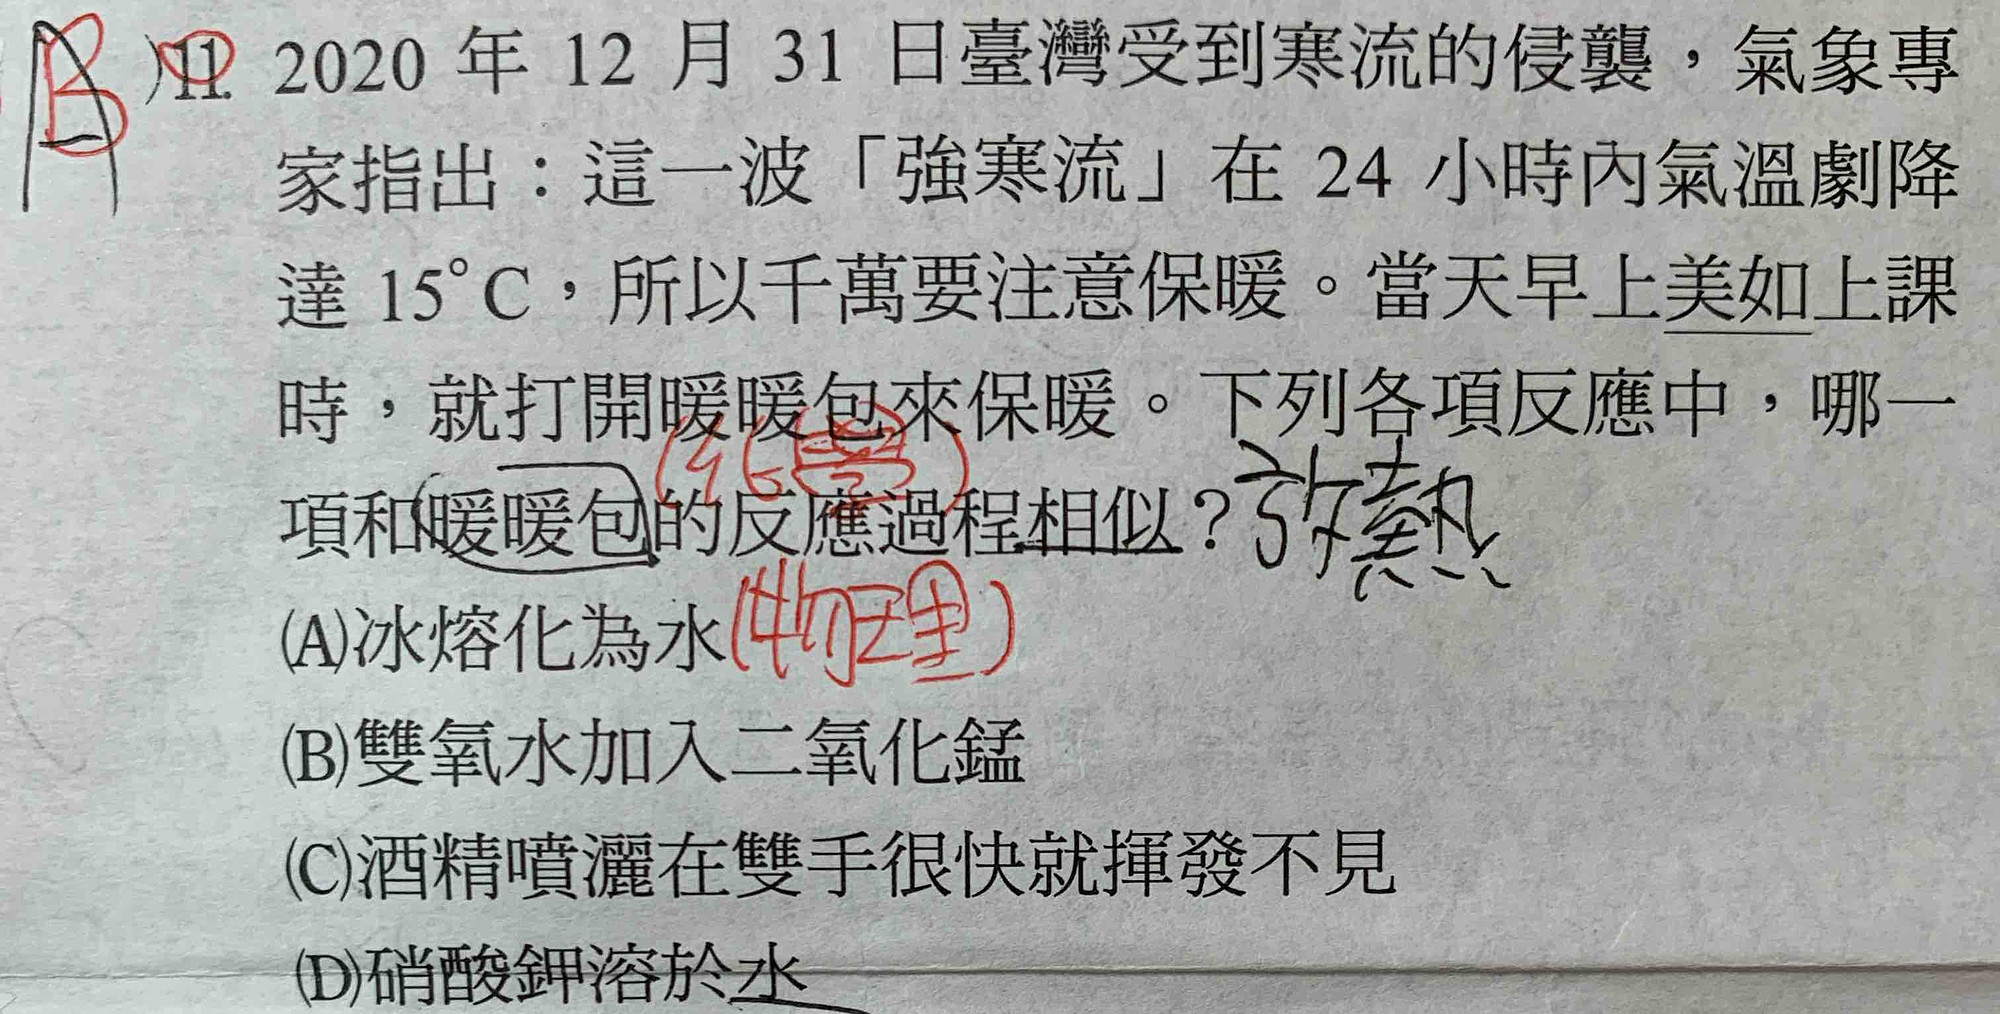 A B )11. 2020 年 12 月 31 日臺灣受到寒流的侵襲，氣象專
家指出：這一波「強寒流」在 24 小時內氣溫劇降
達 15°C，所以千萬要注意保暖。當天早上美如上課
時，就打開暖暖包來保暖。下列各項反應中，哪一
(化學)
項和暖暖包的反應過程相似？放熱
(A)冰熔化為水(物理)
(B)雙氧水加入二氧化錳
(C)酒精噴灑在雙手很快就揮發不見
(D)硝酸鉀溶於水